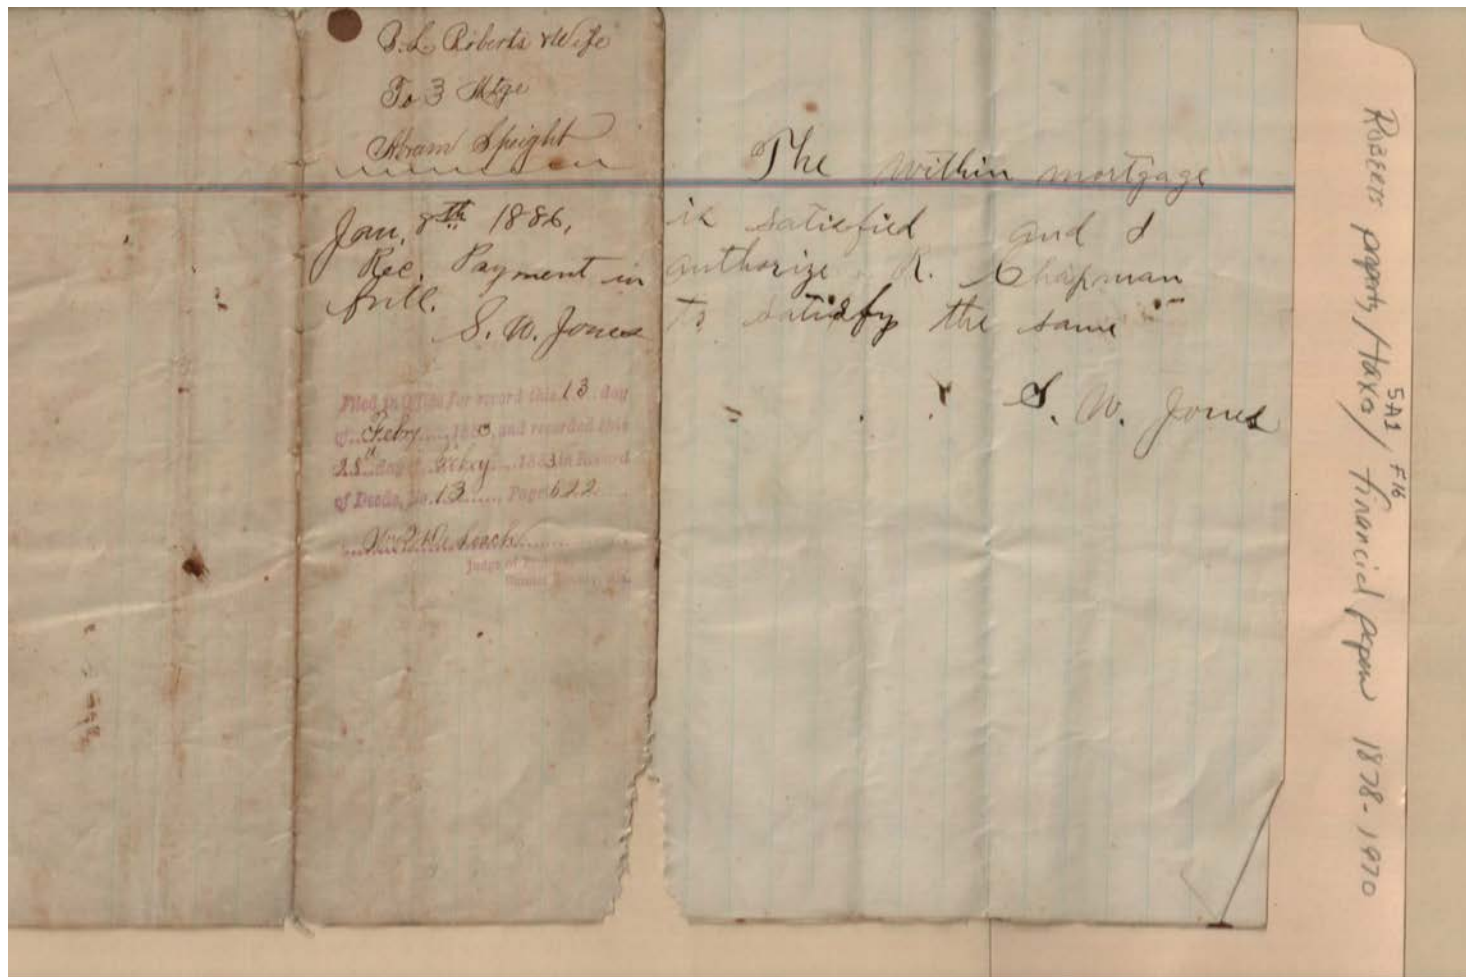 B. L. Roberts & Wife
To 3 Mtge
Abram Speight
Jan. 8th 1886,
Rec. Payment in
full.
S. W. Jones
Filed in office for record this 13 day
of Febry 188, and recorded this
28" day Febry 1883 in Record
of Deeds, No. 13 Page 622
Judge of
The within mortgage
is satisfied and I
authorize R. Chapman
to satisfy the same
S. W. Jones
5A1 F16
ROBERTS property/taxes/financial papers 1878-1970